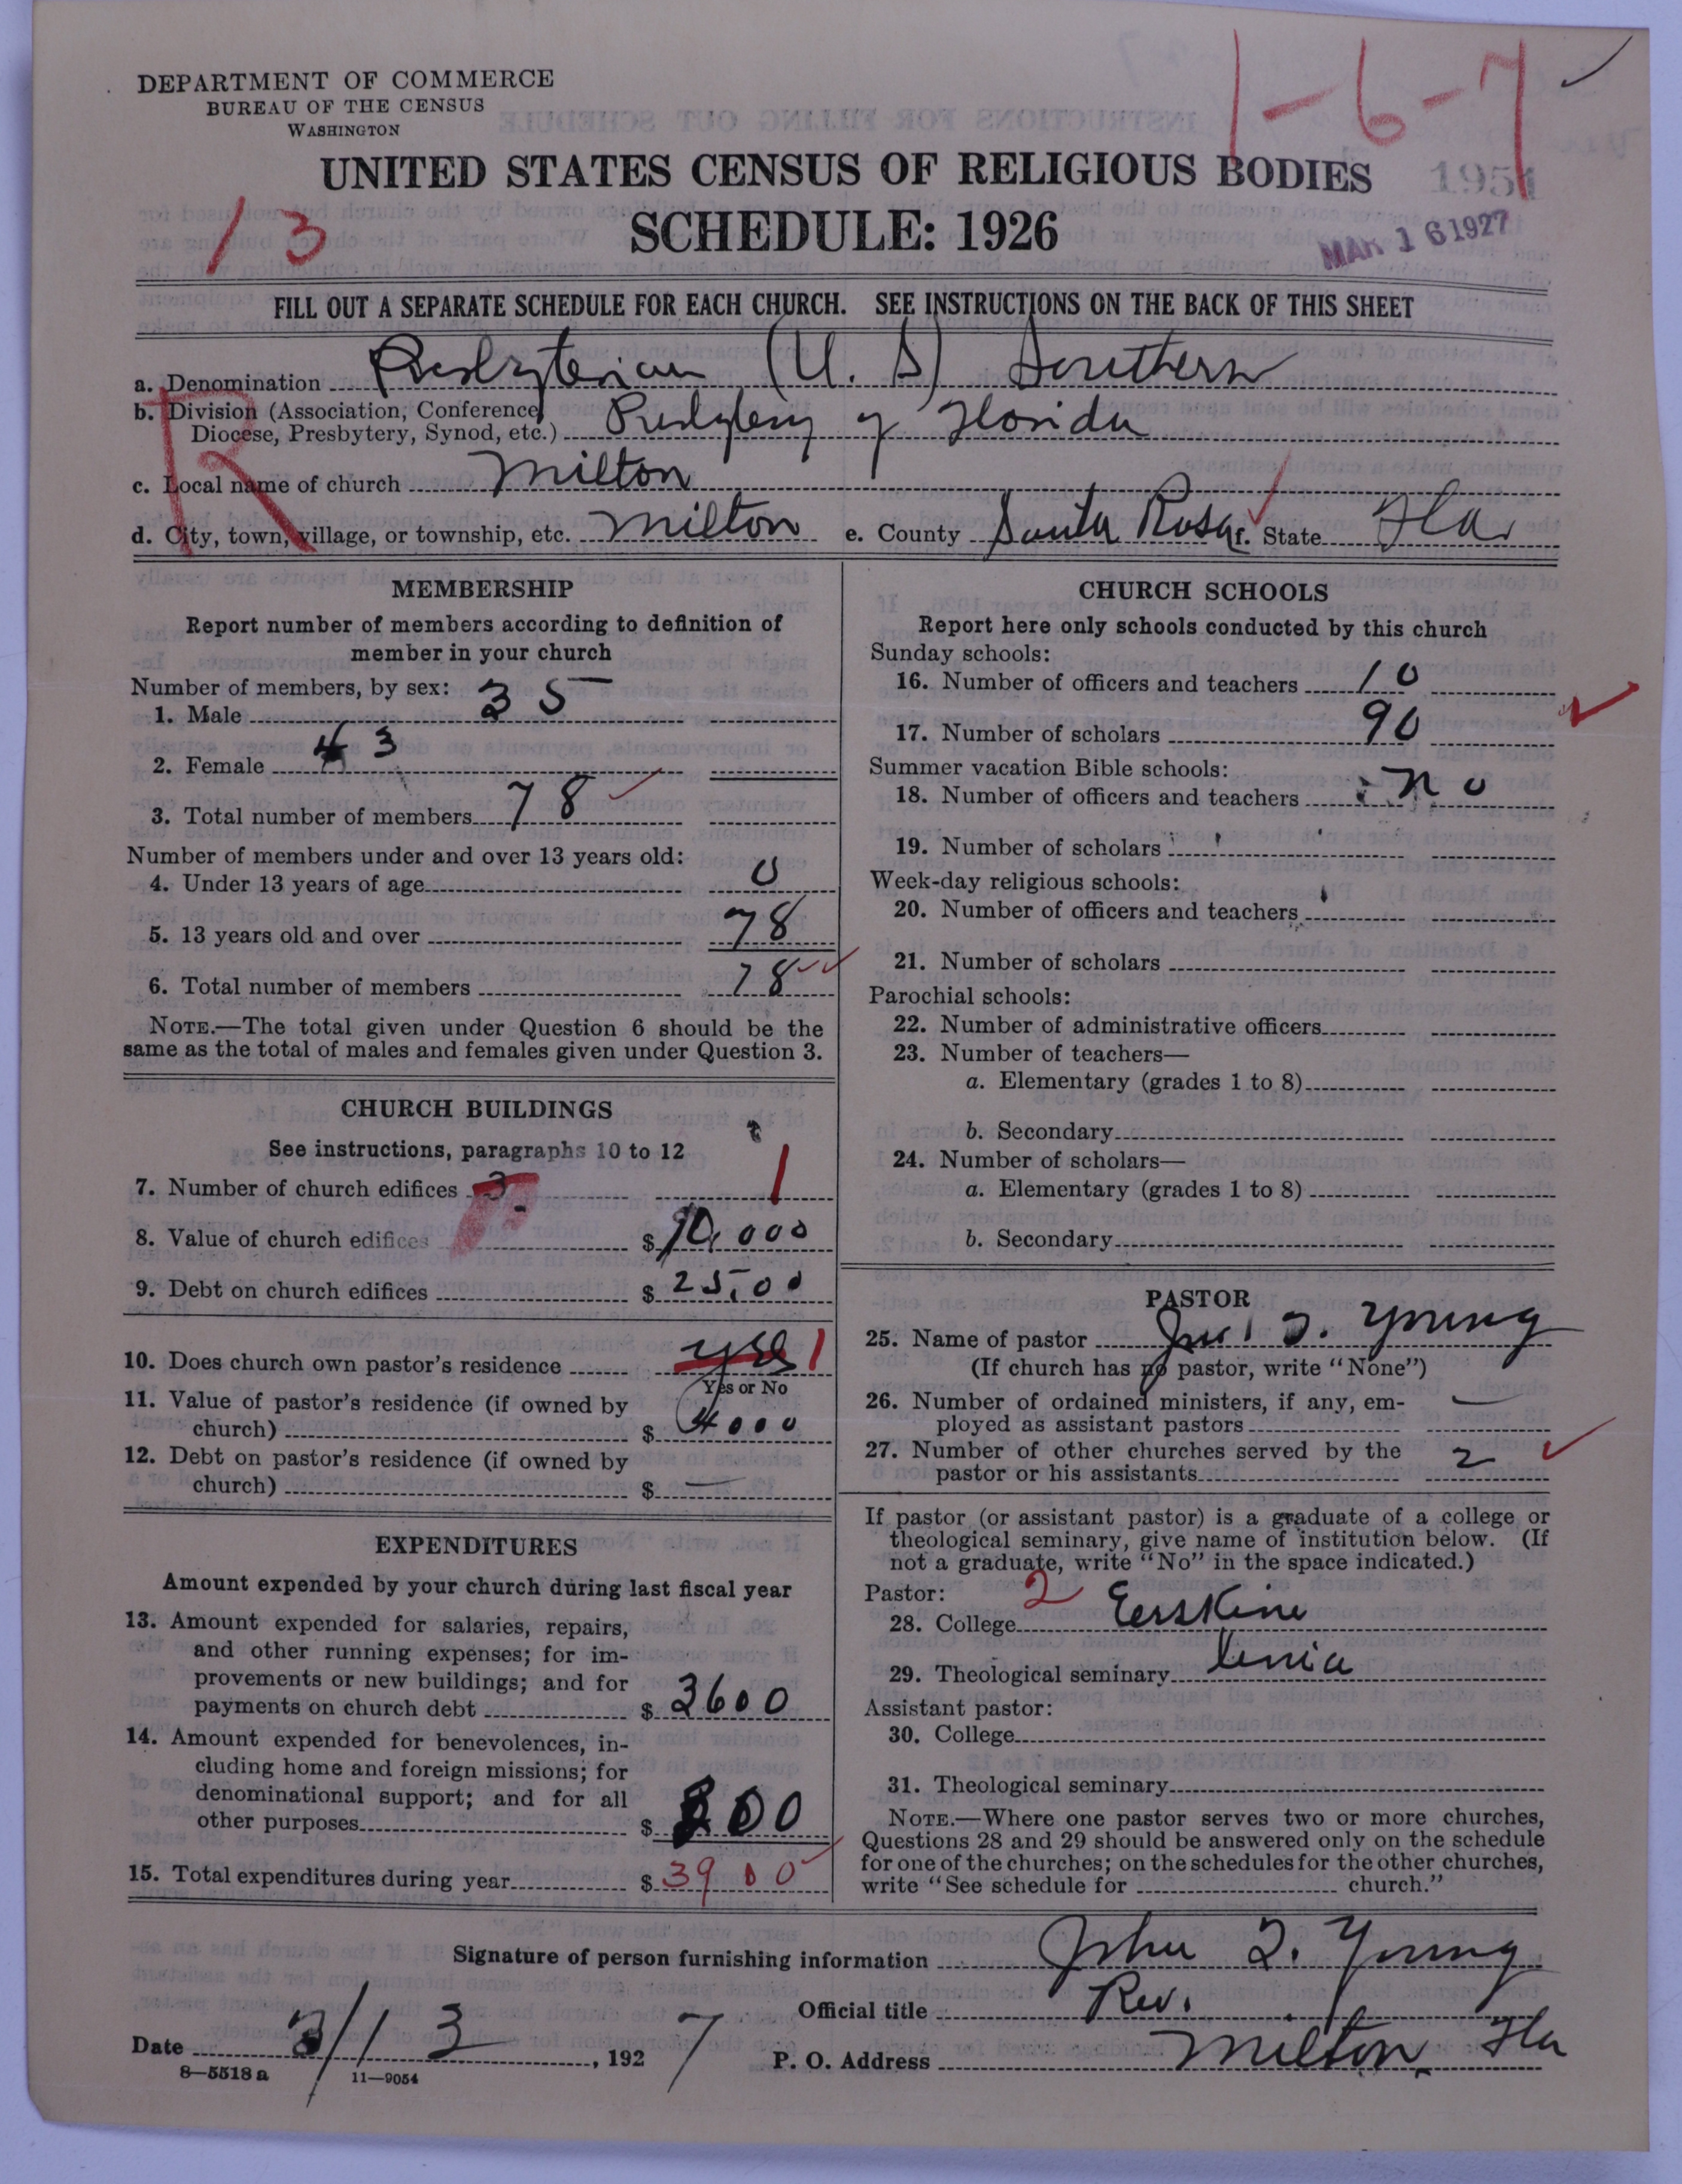 DEPARTMENT OF COMMERCE
BUREAU OF THE CENSUS
WASHINGTON
1-6-7
UNITED STATES CENSUS OF RELIGIOUS BODIES
1951
13
SCHEDULE: 1926
MAR 16 1927
FILL OUT A SEPARATE SCHEDULE FOR EACH CHURCH. SEE INSTRUCTIONS ON THE BACK OF THIS SHEET
a. Denomination Presbyterian (U. S) Southern
b. Division (Association, Conference, Diocese, Presbytery, Synod, etc.) Presbytery of Florida
R
c. Local name of church Milton
d. City, town, village, or township, etc. Milton e. County Santa Rosa f. State Fla.
MEMBERSHIP
Report number of members according to definition of
member in your church
Number of members, by sex:
1. Male 35
2. Female 43
3. Total number of members 78
Number of members under and over 13 years old:
4. Under 13 years of age 0
5. 13 years old and over 78
6. Total number of members 78
NOTE.—The total given under Question 6 should be the
same as the total of males and females given under Question 3.
CHURCH BUILDINGS
See instructions, paragraphs 10 to 12
7. Number of church edifices 3 1
8. Value of church edifices $ 10,000
9. Debt on church edifices $ 2500
10. Does church own pastor's residence yes 1
Yes or No
11. Value of pastor's residence (if owned by
church) $ 4000
12. Debt on pastor's residence (if owned by
church) $ —
EXPENDITURES
Amount expended by your church during last fiscal year
13. Amount expended for salaries, repairs,
and other running expenses; for im-
provements or new buildings; and for
payments on church debt $ 3600
14. Amount expended for benevolences, in-
cluding home and foreign missions; for
denominational support; and for all
other purposes $ 300
15. Total expenditures during year $ 3900
CHURCH SCHOOLS
Report here only schools conducted by this church
Sunday schools:
16. Number of officers and teachers 10
17. Number of scholars 90
Summer vacation Bible schools:
18. Number of officers and teachers no
19. Number of scholars
Week-day religious schools:
20. Number of officers and teachers
21. Number of scholars
Parochial schools:
22. Number of administrative officers
23. Number of teachers—
a. Elementary (grades 1 to 8)
b. Secondary
24. Number of scholars—
a. Elementary (grades 1 to 8)
b. Secondary
PASTOR
25. Name of pastor Jno. T. Young
(If church has no pastor, write "None")
26. Number of ordained ministers, if any, em-
ployed as assistant pastors —
27. Number of other churches served by the
pastor or his assistants 2
If pastor (or assistant pastor) is a graduate of a college or
theological seminary, give name of institution below. (If
not a graduate, write "No" in the space indicated.)
Pastor: 2
28. College Erskine
29. Theological seminary Xenia
Assistant pastor:
30. College
31. Theological seminary
NOTE.—Where one pastor serves two or more churches,
Questions 28 and 29 should be answered only on the schedule
for one of the churches; on the schedules for the other churches,
write "See schedule for church."
Signature of person furnishing information John T. Young
Official title Rev.
Date 3/13, 1927
P. O. Address Milton, Fla
8—5518 a 11—9054